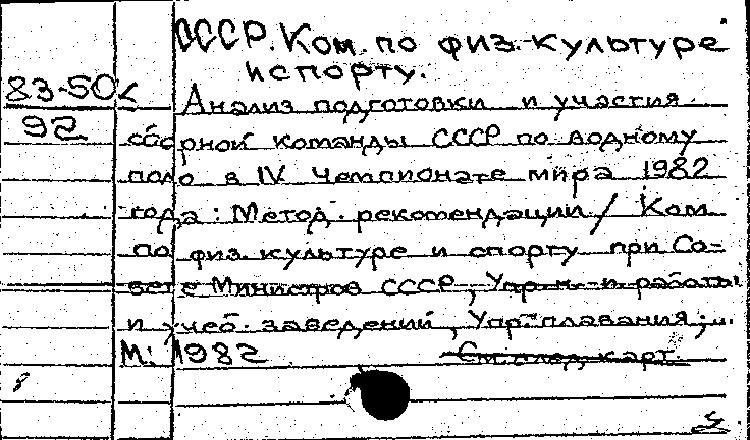 СССР. Ком. по физ. культуре
и спорту.
83-50к
92
Анализ подготовки и участия
сборной команды СССР по водному
поло в IV Чемпионате мира 1982
года: Метод. рекомендации / Ком.
по физ. культуре и спорту при Со-
вете Министров СССР, Упр. н.-и. работы
и учеб. заведений, Упр. плавания;...
М: 1982
См. след. карт.